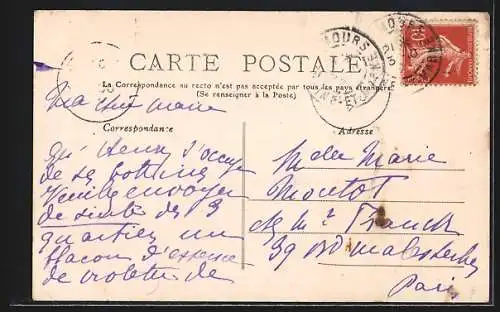 CARTE POSTALE
La Correspondance au recto n'est pas acceptée par tous les pays étrangers
(Se renseigner à la Poste)
Ma chère Marie
Correspondance
Qu'Henri s'occupe
de ses
Veuillez envoyer
de suite des
quartiers un
flacon d'essence
de violette de
TOURS
Adresse
Marie
Montot
Ch Mr Franck
39 Bd Malesherbes
Paris